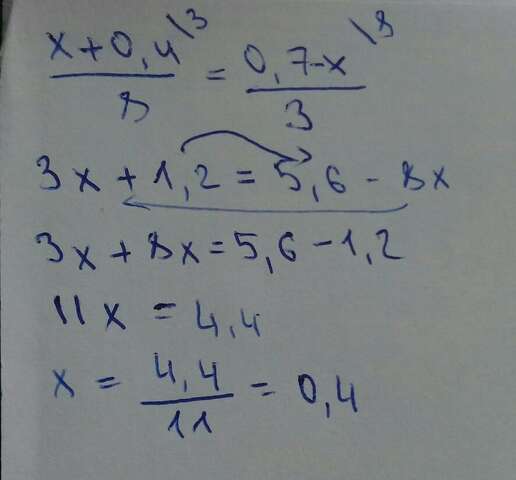 x+0,4\3 / 8 = 0,7-x\8 / 3
3x + 1,2 = 5,6 - 8x
3x + 8x = 5,6 - 1,2
11x = 4,4
x = 4,4 / 11 = 0,4